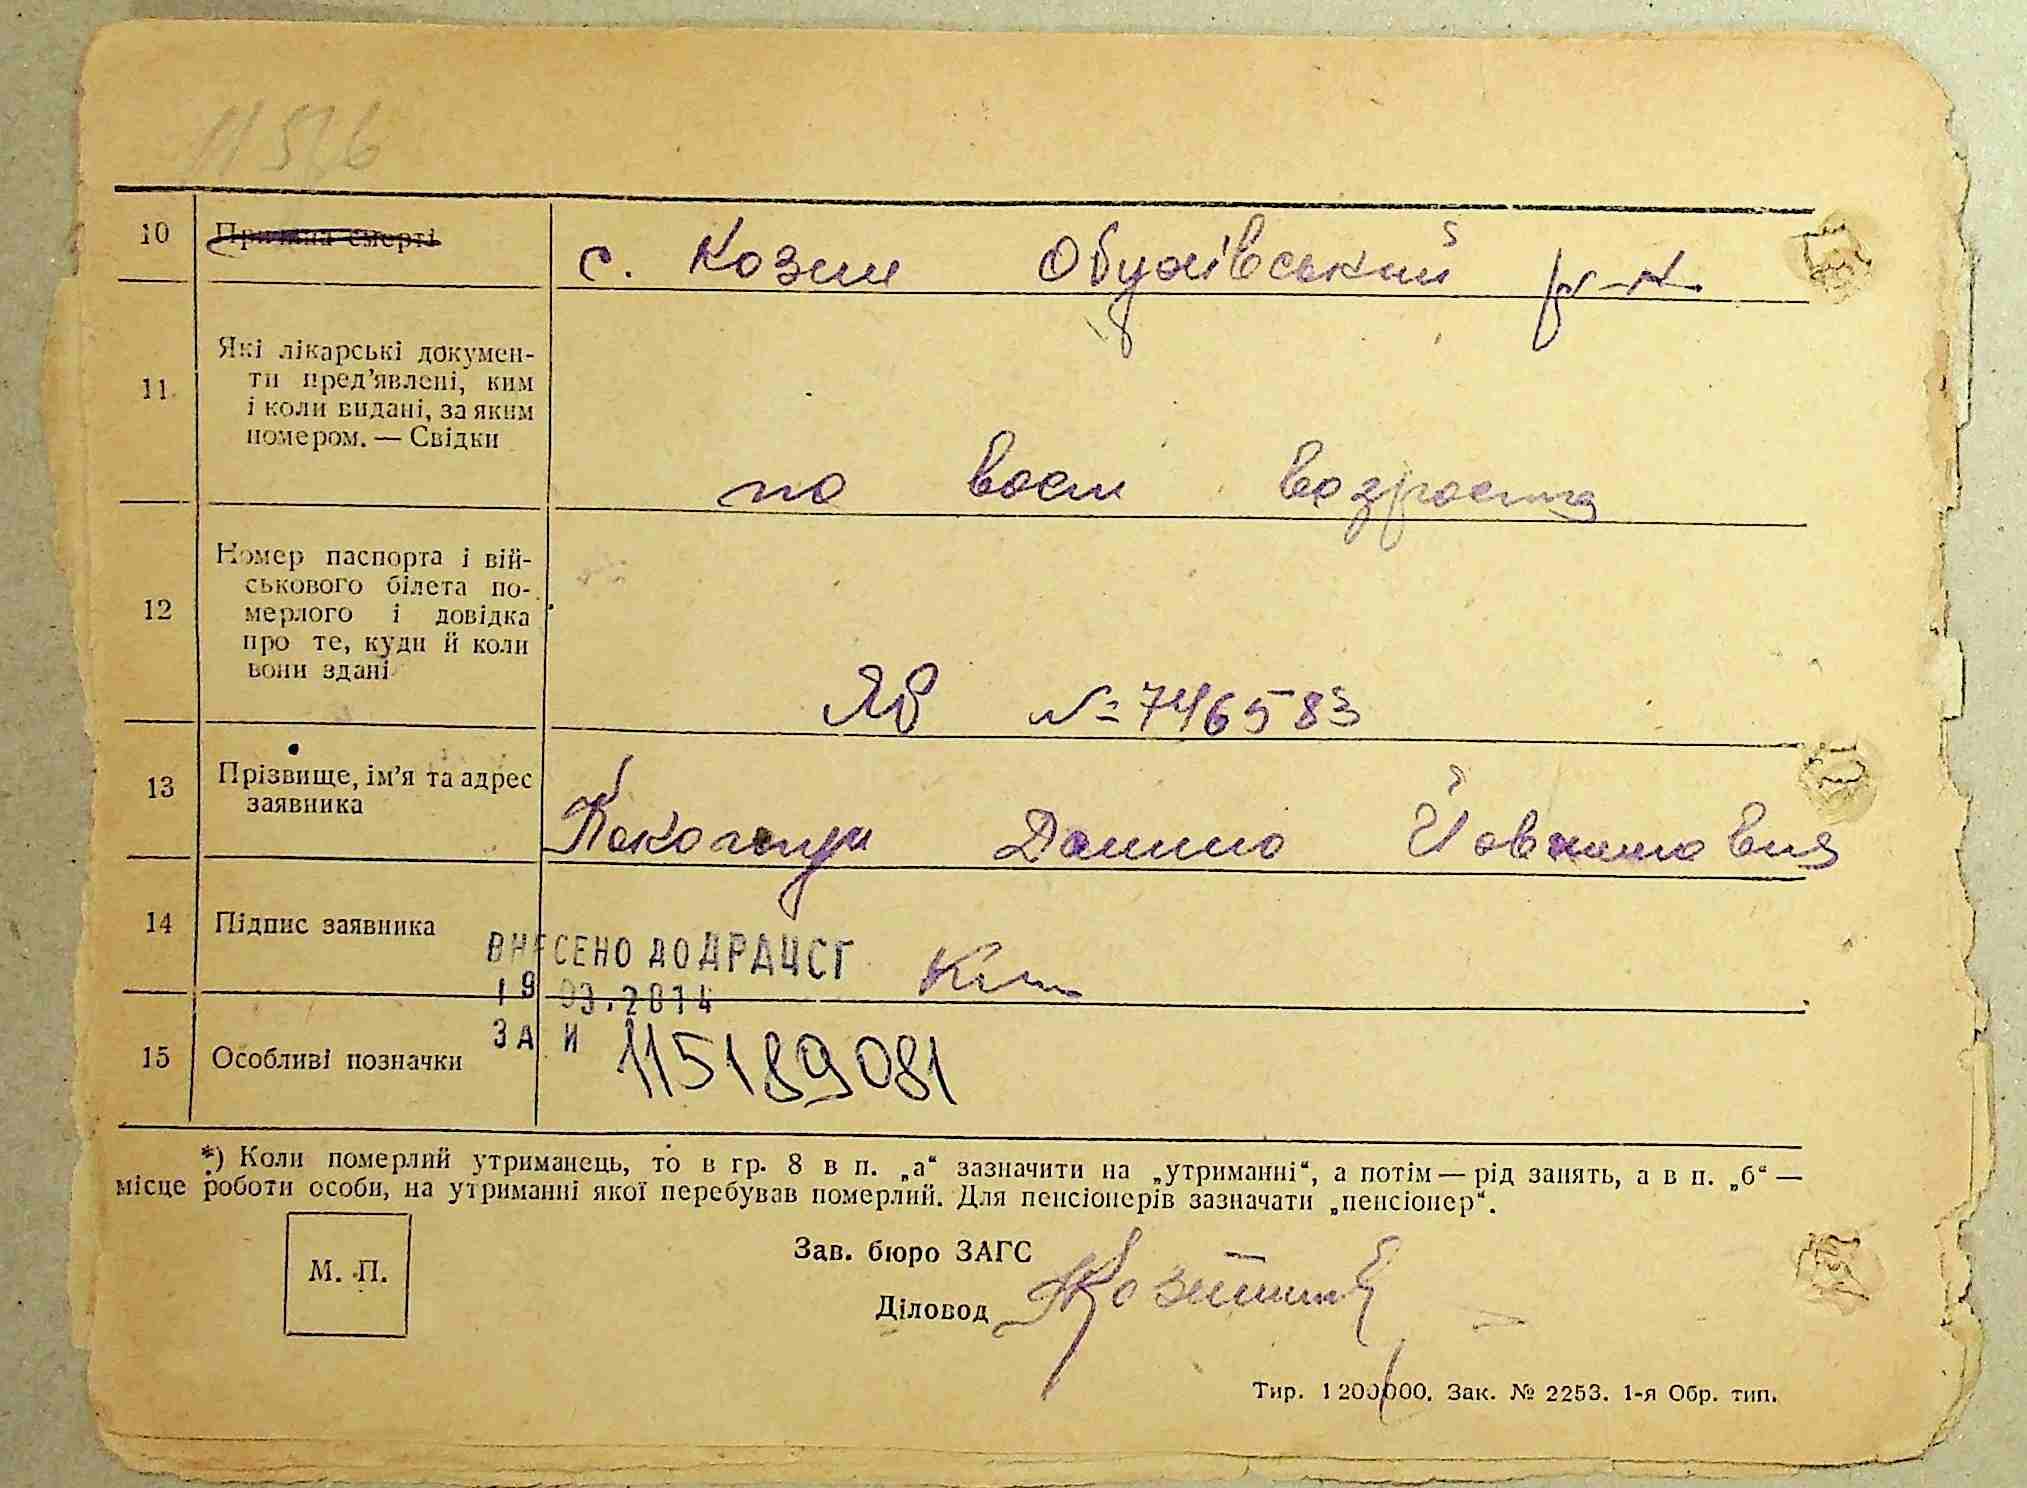 11536
10 Причина смерті с. Козин Обухівський р-н.
11 Які лікарські докумен-
ти пред'явлені, ким
і коли видані, за яким
номером. — Свідки
по воєн возроста
12 Номер паспорта і вій-
ськового білета по-
мерлого і довідка
про те, куди й коли
вони здані
ЯВ №=746583
13 Прізвище, ім'я та адрес
заявника
Данило
14 Підпис заявника
ВНЕСЕНО ДО ДРАЦСГ
19 03.2014
15 Особливі позначки
ЗА И 115189081
*) Коли померлий утриманець, то в гр. 8 в п. „а“ зазначити на „утриманні“, а потім — рід занять, а в п. „б“ —
місце роботи особи, на утриманні якої перебував померлий. Для пенсіонерів зазначати „пенсіонер“.
М. П.
Зав. бюро ЗАГС
Діловод
Тир. 1200000. Зак. № 2253. 1-я Обр. тип.